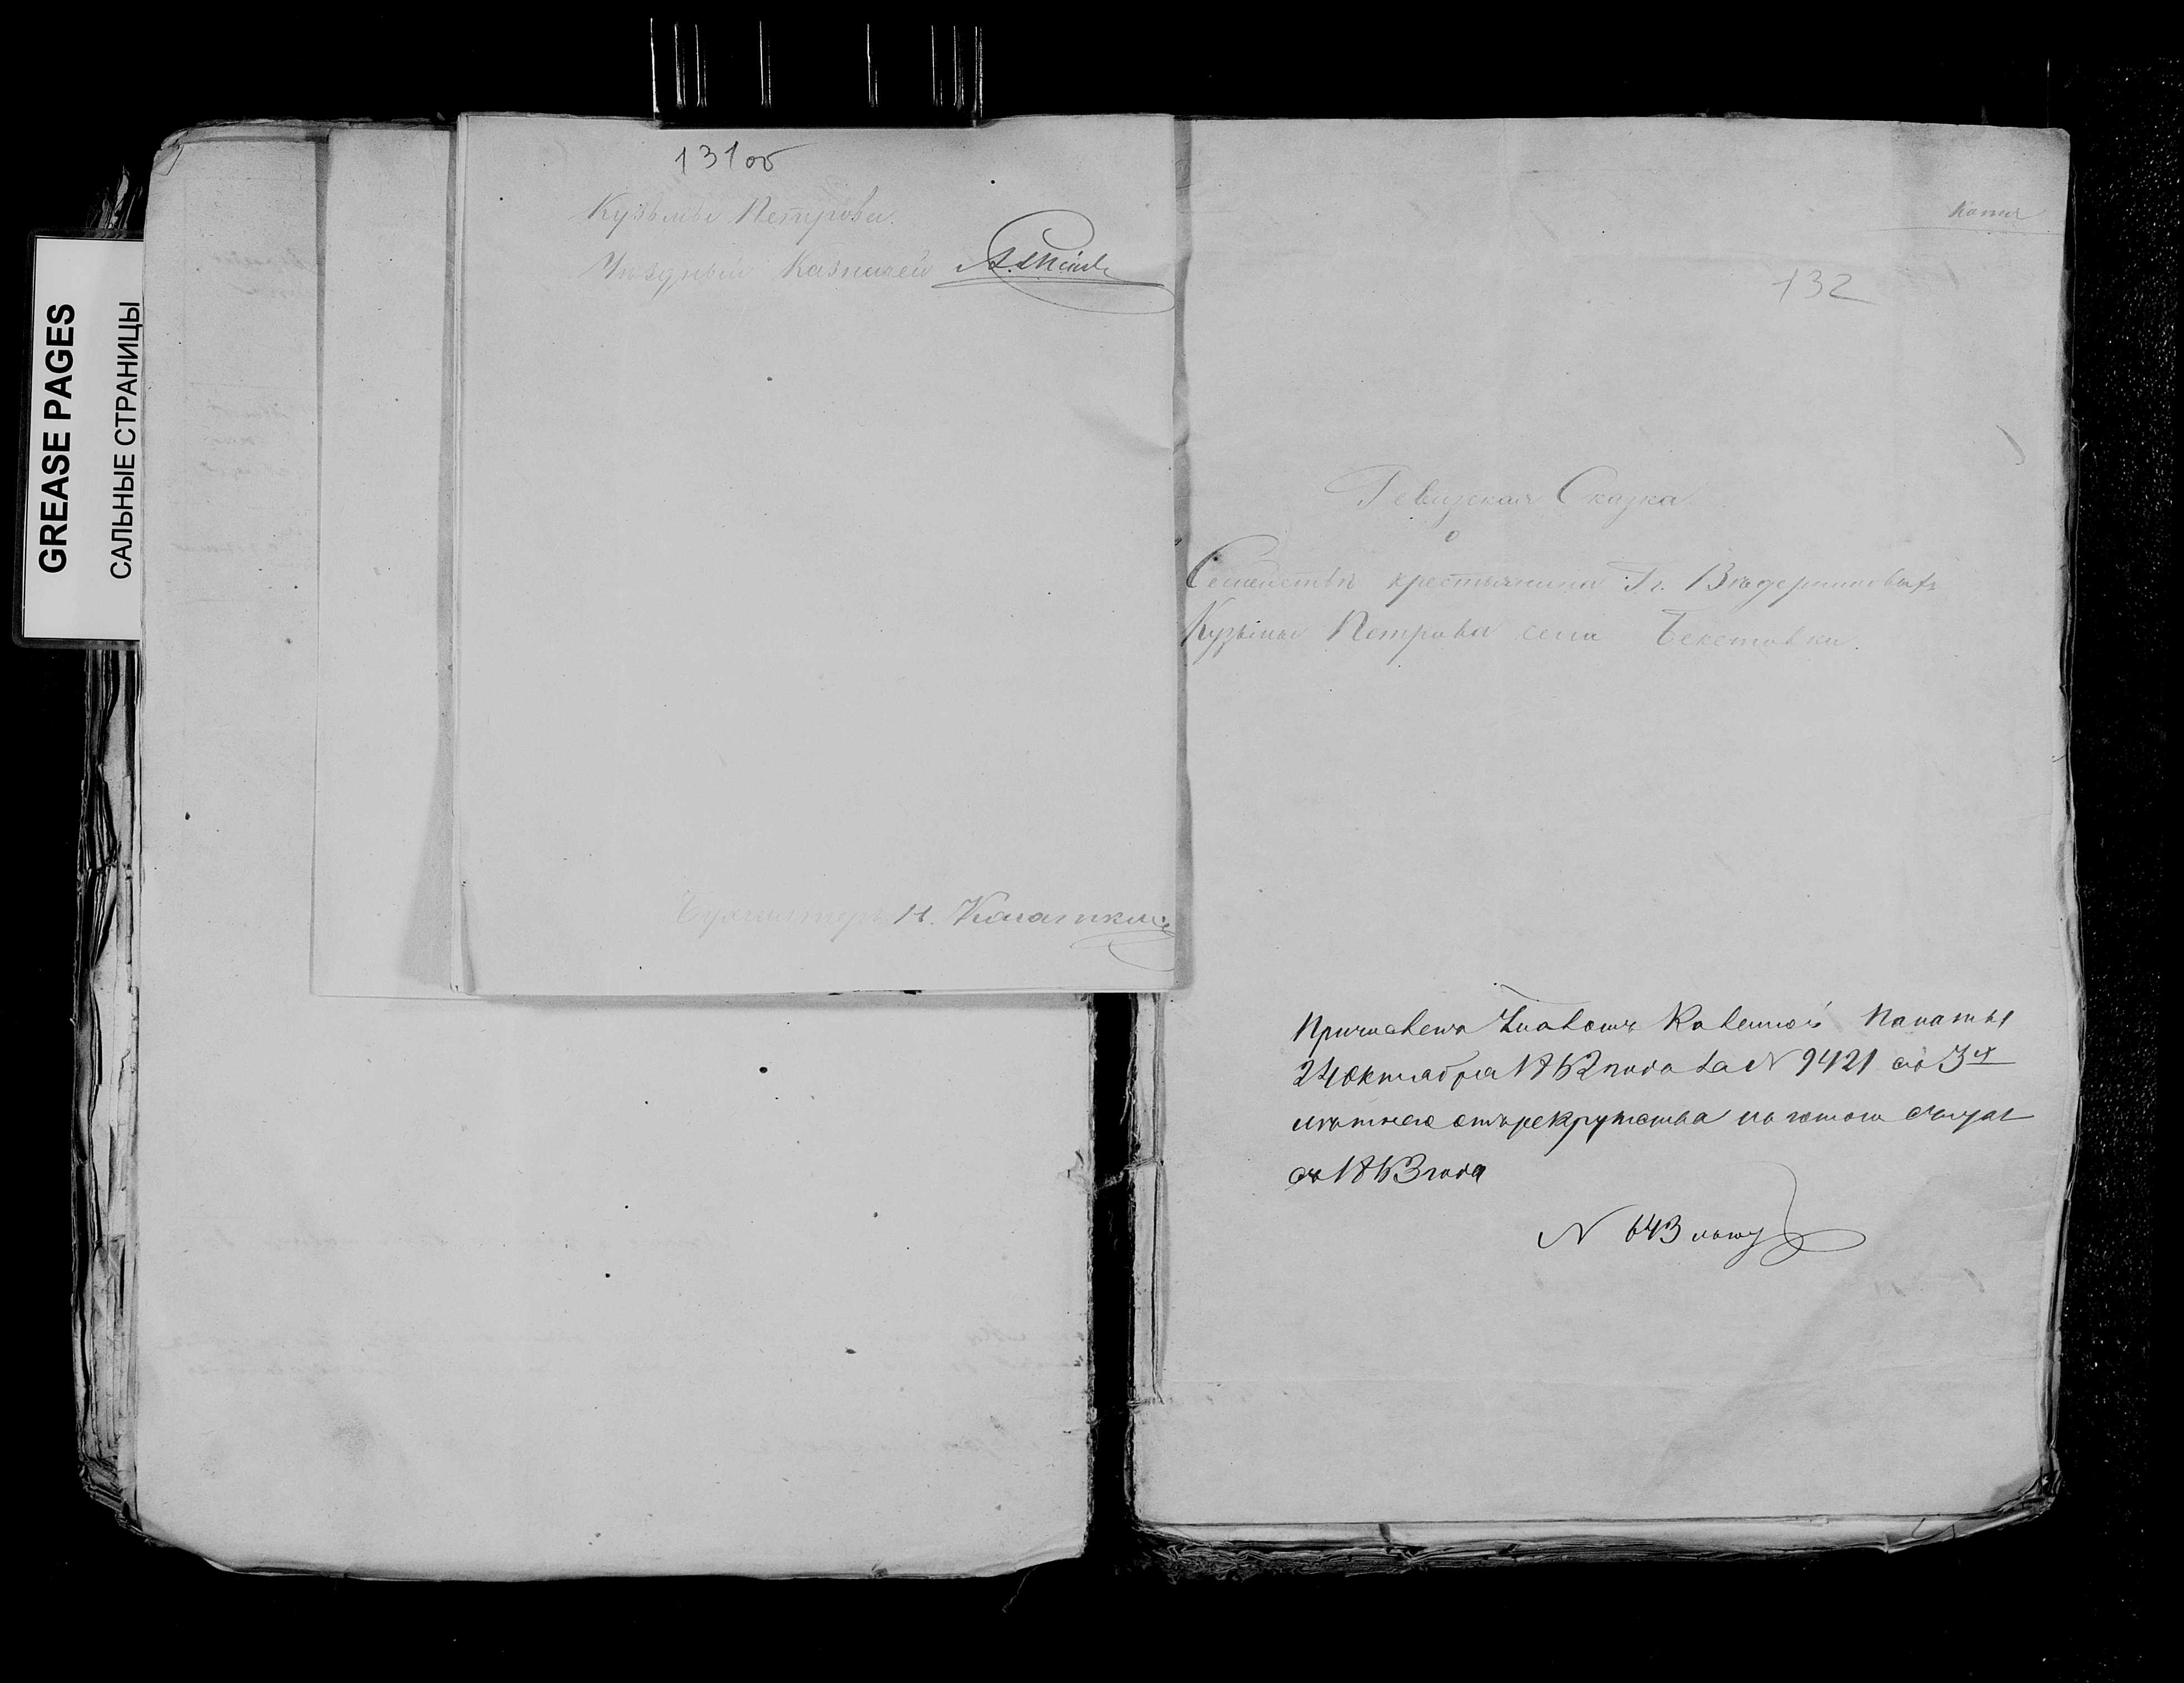 GREASE PAGES
САЛЬНЫЕ СТРАНИЦЫ
131об
Кузьмы Петрова.
Уѣздный Казначей
Бухгалтеръ Н.
Копия
132
Ревизская Сказка
о
Семействѣ крестьянина Гг.
Кузьмы Петрова села Бекетовки.
Причисленъ Указомъ Казенной Палаты
24 Октября 1862 года за N 9421 съ 3х
лѣтнею отъ рекрутства льготою считая
съ 1863 года
N 643